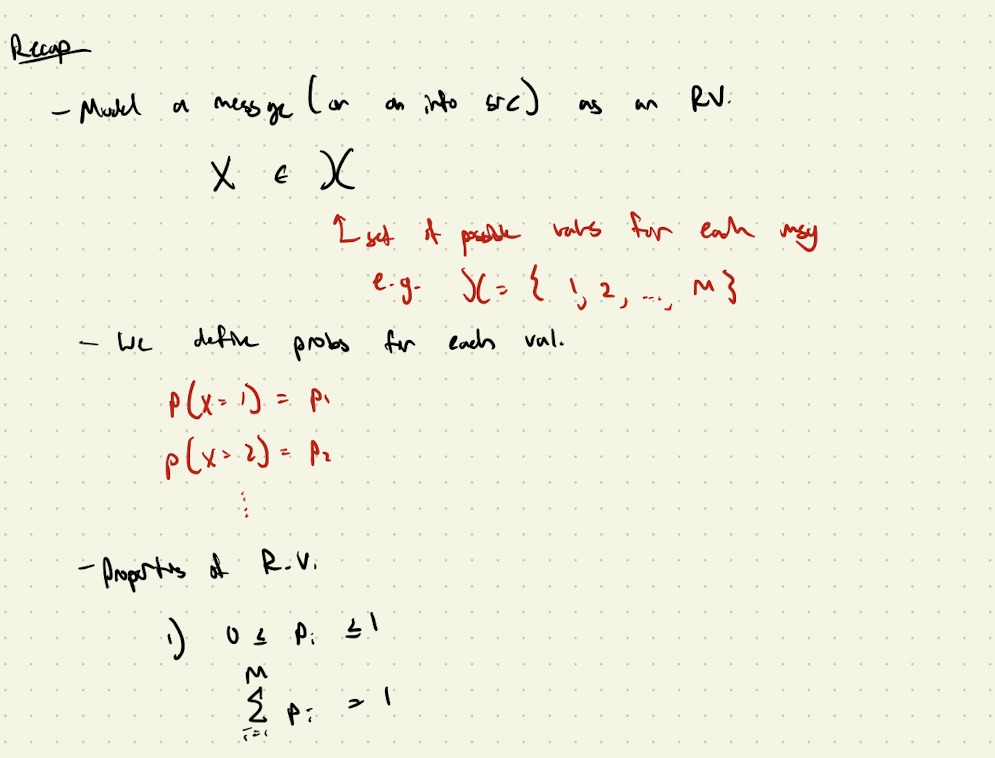 Recap
- Model a message (or an info src) as an RV.
X ∈ 𝒳
↑ set of possible vals for each msg
e.g. 𝒳 = { 1, 2, ..., M }
- We define probs for each val.
p(X = 1) = p₁
p(X = 2) = p₂
⋮
- Properties of R.V.
1) 0 ≤ pᵢ ≤ 1
M
∑ pᵢ = 1
i=1